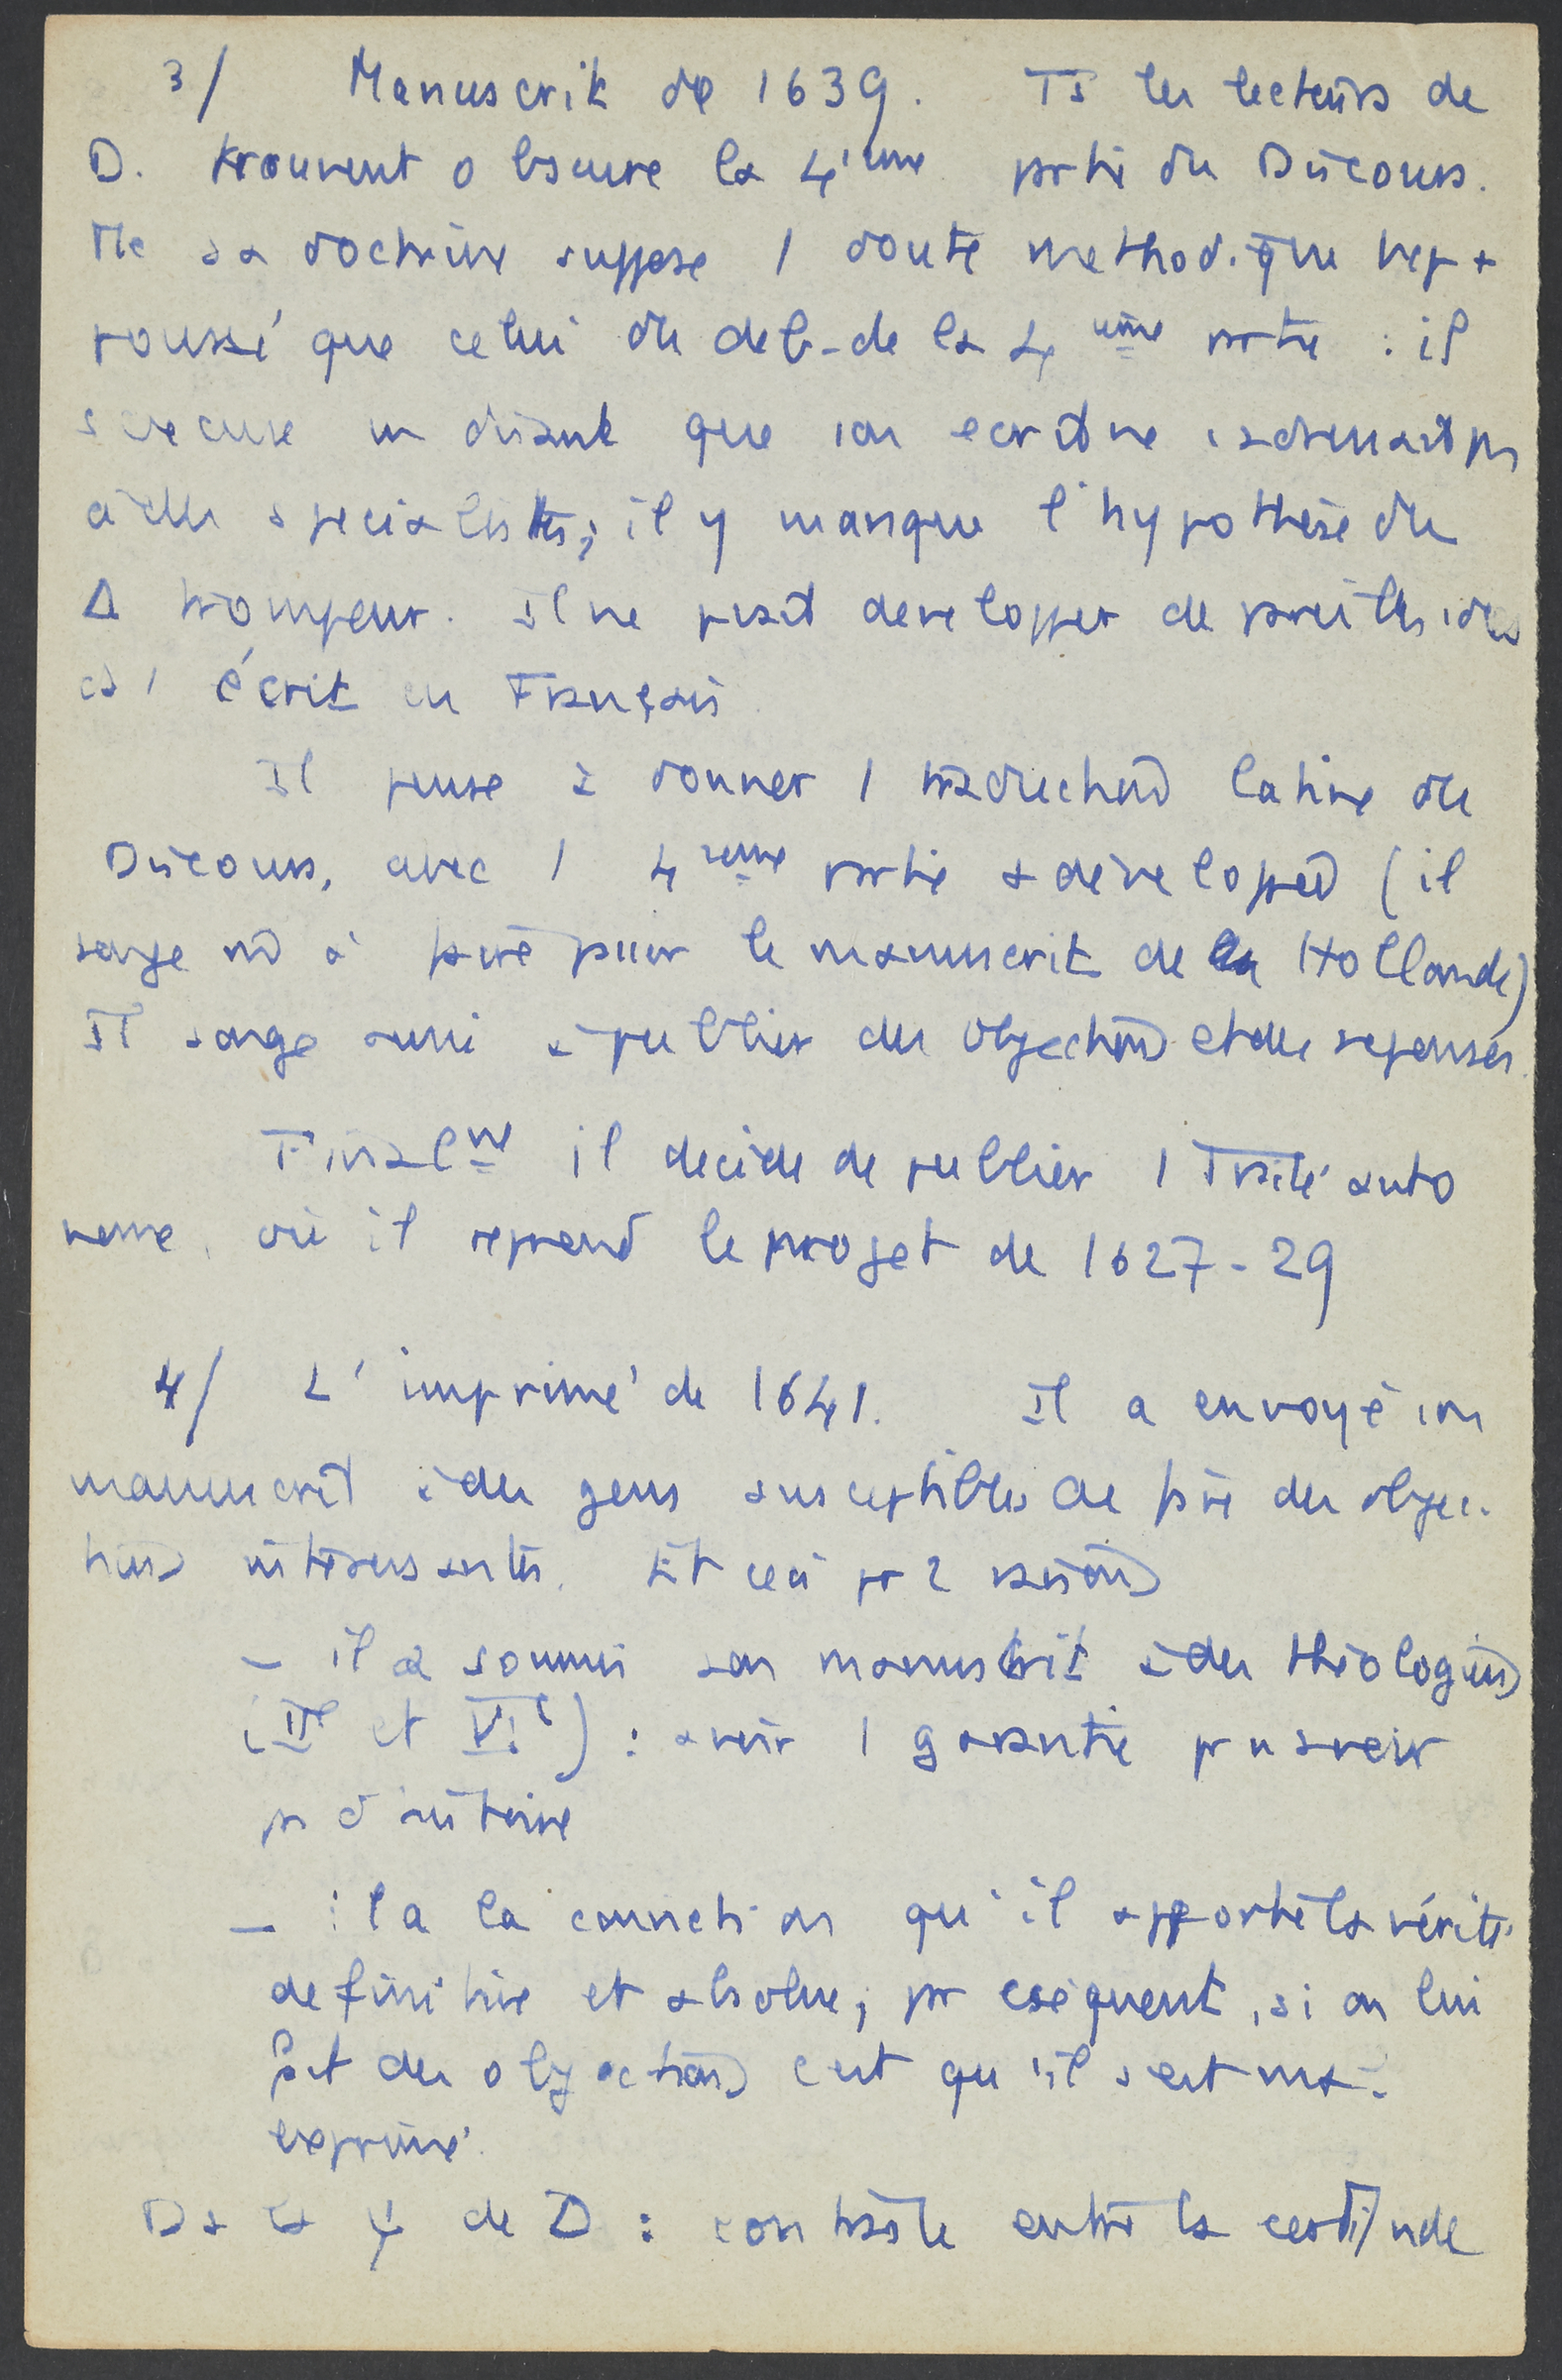 3/ Manuscrit de 1639. Ts les lecteurs de
D. trouvent obscure la 4ième partie du Discours.
sa doctrine suppose 1 doute methodique
poussé que celui du deb. de la 4ème partie : il
s'excuse en disant que son ecrit ne s'adressait ps
à des specialistes ; il y manque l'hypothèse du
Δ trompeur. Il ne peut developper de pareilles ids
ds 1 écrit en Français
Il pense à donner 1 traduction latine du
Discours, avec 1 4ieme partie + développée (il
songe à faire le manuscrit de Hollande)
Il songe aussi à publier des objections et des reponses.
Finalmt il decide de publier 1 Traité auto
nome, où il reprend le projet de 1627-29
4/ L'imprimé de 1641. Il a envoyé son
manuscrit à des gens susceptibles de faire des objec-
tions intéressantes. Et ceci pr 2 raisons
- il a soumis son manuscrit à des théologiens
(IIe et VIe) : avoir 1 garantie pr avoir
ps d'
- il a la conviction qu'il apporte la vérité
definitive et absolue ; pr csequent, si on lui
fait des objections c'est qu'il s'est mal
exprimé.
Ds la ψ de D : contraste entre la certitude